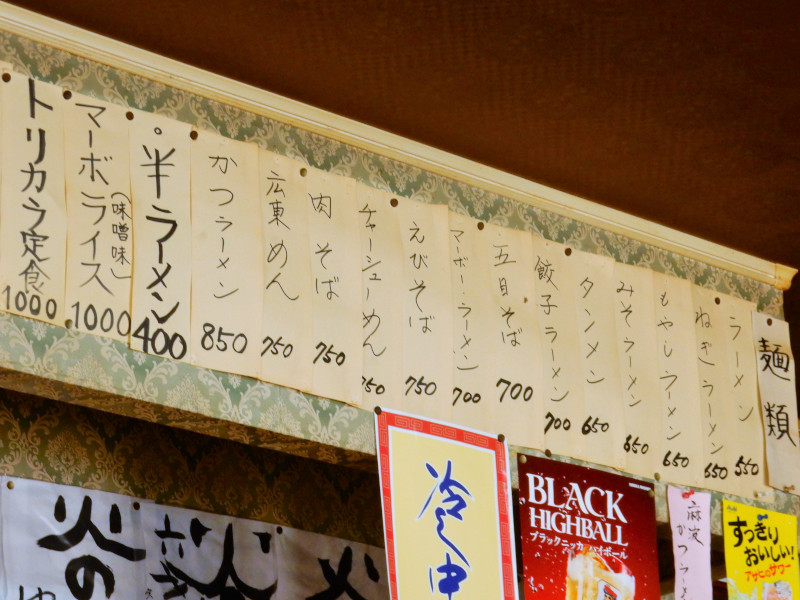 麺類
ラーメン 550
ねぎラーメン 650
もやしラーメン 650
みそラーメン 650
タンメン 650
餃子ラーメン 700
五目そば 700
マーボーラーメン 700
えびそば 750
チャーシューめん 750
肉そば 750
広東めん 750
かつラーメン 850
半ラーメン 400
マーボライス(味噌味) 1000
トリカラ定食 1000
冷し中
BLACK
HIGHBALL
ブラックニッカ ハイボール
かつラーメ
すっきり
おいしい!
アサヒのサワー